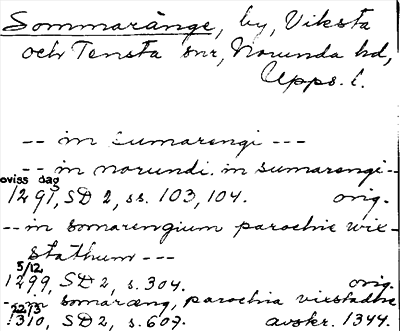 Sommaränge, by, Viksta
och Tensta snr, Norunda hd,
Upps. l.
-- in sumarengi ---
-- in norundi. in sumarengi --
oviss dag
1291, SD 2, ss. 103, 104. orig.
-- in somarengium parochie wix-
stathum ---
5/12
1299, SD 2, s. 304. orig.
-- in somaræng, parochia vixstadhe
22/3
1310, SD 2, s. 607. avskr. 1344.